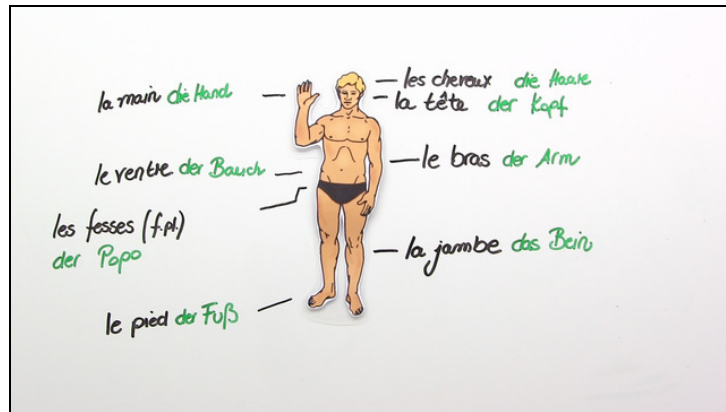 la main die Hand
le ventre der Bauch
les fesses (f.pl.)
der Popo
le pied der Fuß
les cheveux die Haare
la tête der Kopf
le bras der Arm
la jambe das Bein